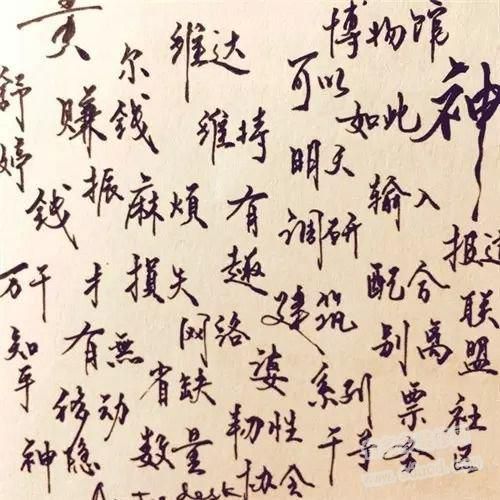 黄
尔
维达
博物馆
神
舒婷
赚钱
维持
可以
如此
明天
钱
振
麻烦
有趣
调研
输入
报道
万千
才
损失
建筑
配合
联盟
知乎
有無
网络
别离
社区
移动
省缺
婆
系列
票
神隐
数量
韧性
干事
协会